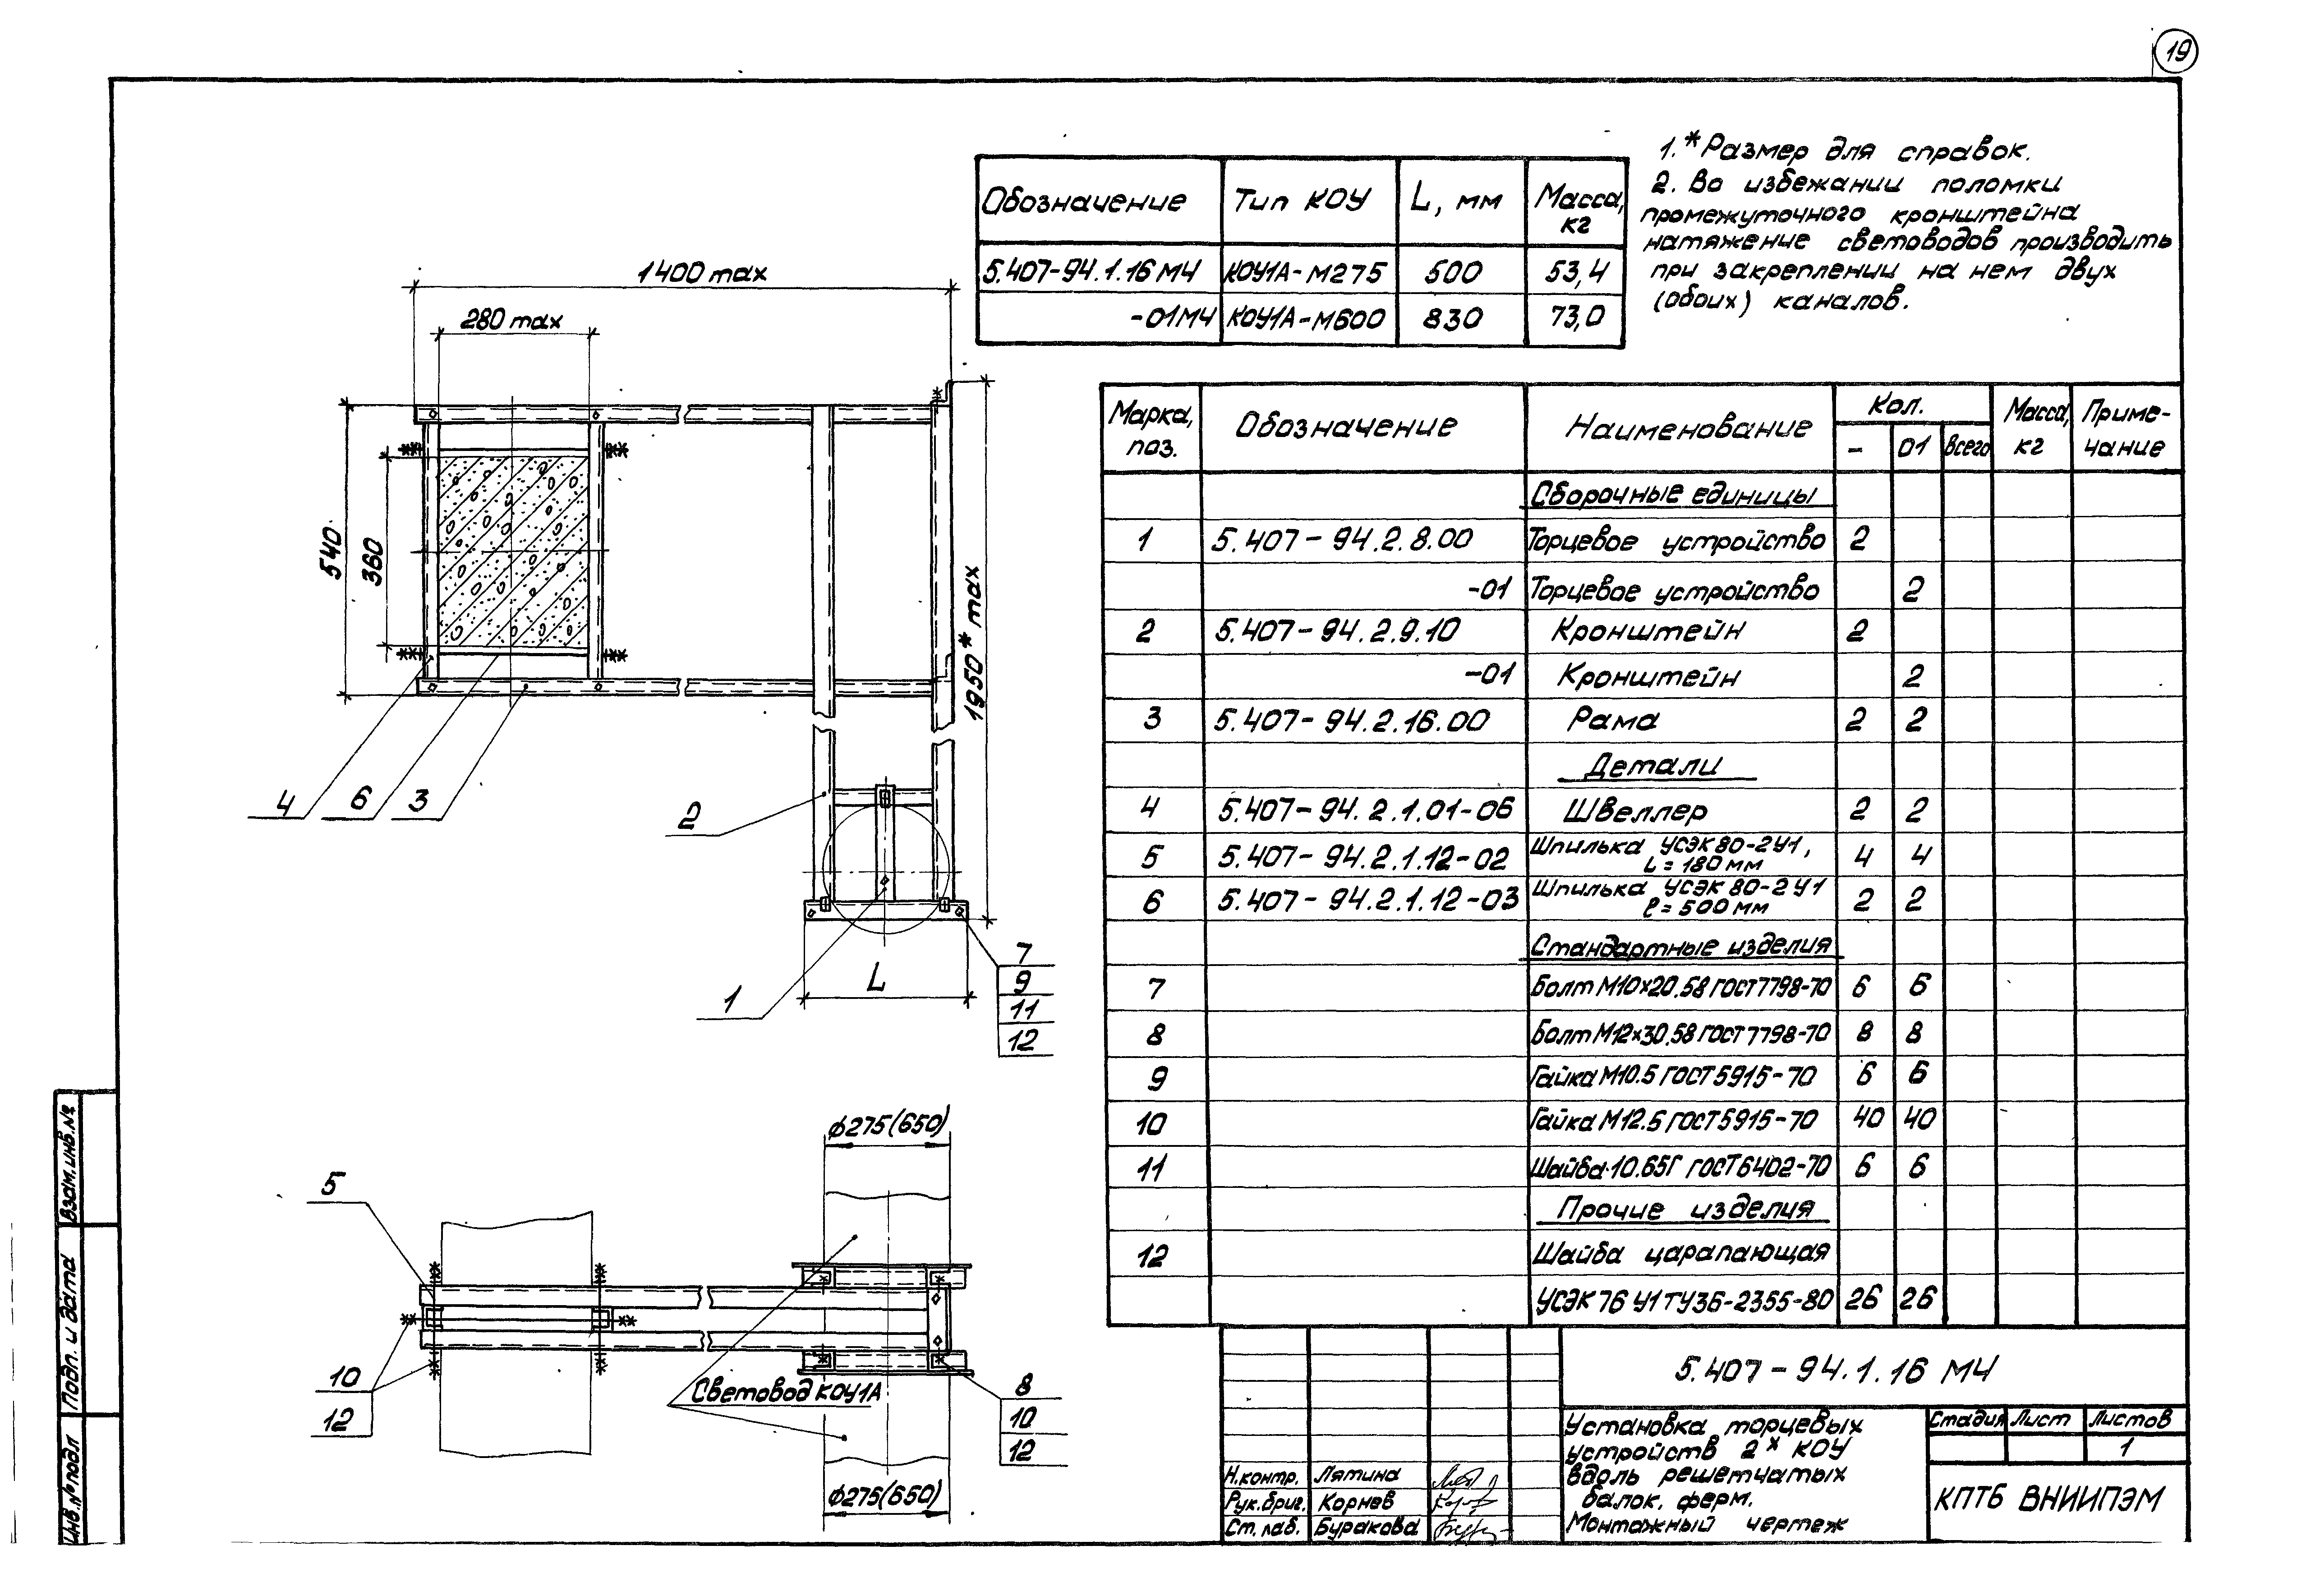 19
1.* Размер для справок.
2. Во избежании поломки
промежуточного кронштейна
натяжение световодов производить
при закреплении на нем двух
(обоих) каналов.
Обозначение Тип КОУ L, мм Масса, кг
5.407-94.1.16 МЧ КОУ1А-М275 500 53,4
-01МЧ КОУ1А-М600 830 73,0
1400 max
280 max
540
360
1950* max
4 6 3
2
1
L
7
9
11
12
Марка, поз. Обозначение Наименование Кол. Масса, кг Приме-чание
- 01 Всего
Сборочные единицы
1 5.407-94.2.8.00 Торцевое устройство 2
-01 Торцевое устройство 2
2 5.407-94.2.9.10 Кронштейн 2
-01 Кронштейн 2
3 5.407-94.2.16.00 Рама 2 2
Детали
4 5.407-94.2.1.01-06 Швеллер 2 2
5 5.407-94.2.1.12-02 Шпилька УСЭК 80-2У1, L=180 мм 4 4
6 5.407-94.2.1.12-03 Шпилька УСЭК 80-2У1 ℓ=500 мм 2 2
Стандартные изделия
7 Болт М10х20.58 ГОСТ 7798-70 6 6
8 Болт М12х30.58 ГОСТ 7798-70 8 8
9 Гайка М10.5 ГОСТ 5915-70 6 6
10 Гайка М12.5 ГОСТ 5915-70 40 40
11 Шайба 10.65Г ГОСТ 6402-70 6 6
Прочие изделия
12 Шайба царапающая
УСЭК 76 У1 ТУ36-2355-80 26 26
ϕ275(650)
5
10
12
Световод КОУ1А
8
10
12
ϕ275(650)
5.407-94.1.16 МЧ
Установка торцевых
устройств 2х КОУ
вдоль решетчатых
балок, ферм.
Монтажный чертеж
Стадия Лист Листов
1
КПТБ ВНИИПЭМ
Н.контр. Лятина
Рук.бриг. Корнев
Ст. лаб. Буракова
Взам.инв.№
Подп. и дата
Инв.№ подл